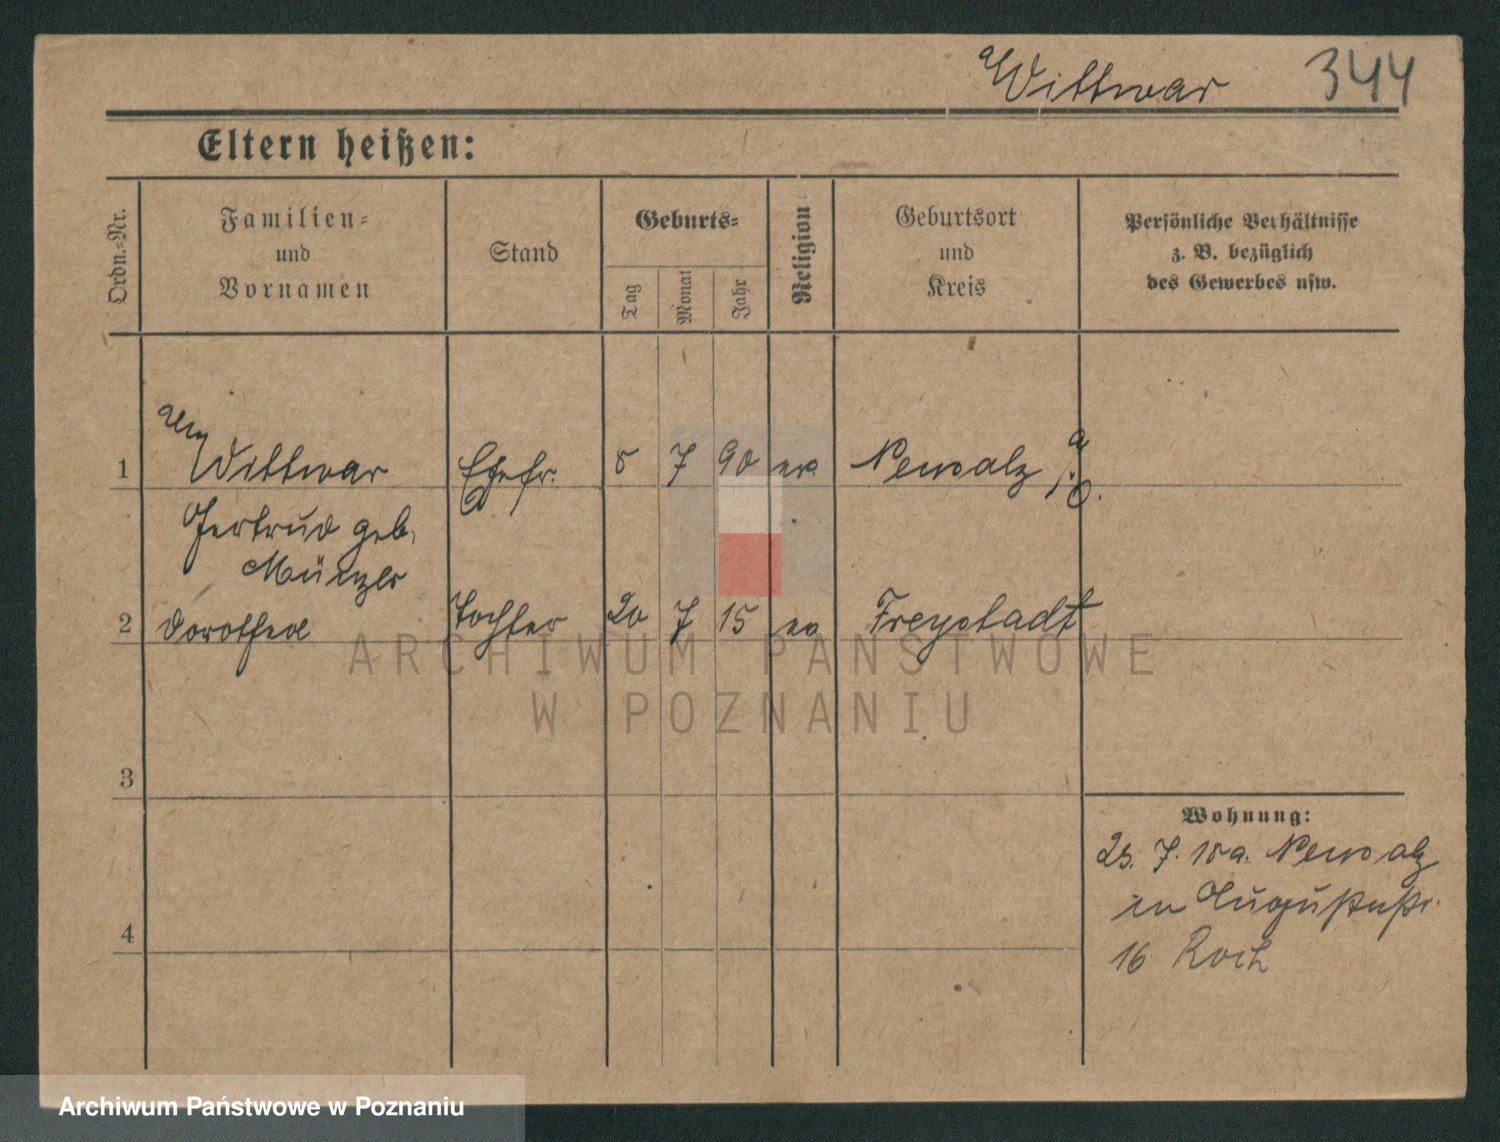 Wittwar 344
Eltern heißen:
Ordn.-Nr.
Familien-
und
Vornamen
Stand
Geburts-
Tag
Monat
Jahr
Religion
Geburtsort
und
Kreis
Persönliche Verhältnisse
z. B. bezüglich
des Gewerbes usw.
1 Wittwar Ehefr. 8 7 90 ev. Neusalz a/O.
Gertrud geb.
Münzer
2 Dorothea Tochter 20 7 15 ev Freystadt
3
4
Wohnung:
7. Neusalz
in Augustustr.
16 Roch
ARCHIWUM PAŃSTWOWE
W POZNANIU
Archiwum Państwowe w Poznaniu